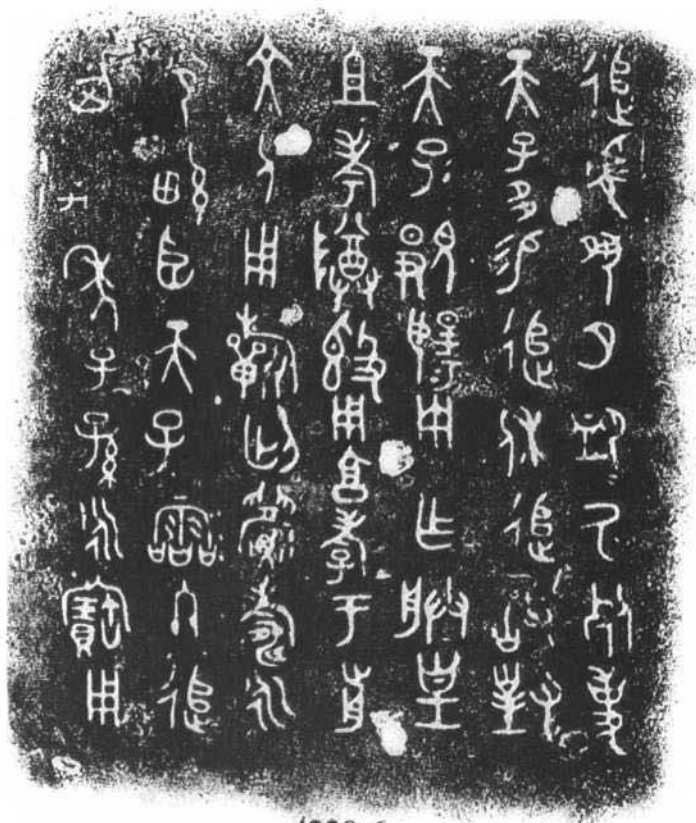 追虔夙夕卹氒死事
天子多易追休追敢對
天子覭揚用乍朕皇
且考䵼𣪘用亯孝于前
文人用𣄨匄眉壽永
令畯臣天子霝冬追
其萬年子子孫孫永寶用